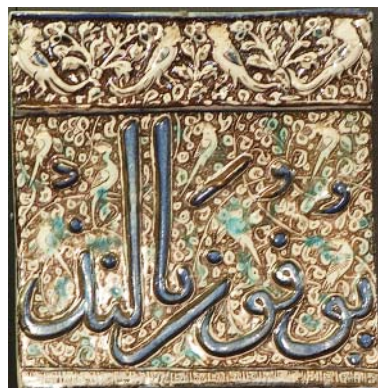 يوفون بالنذ